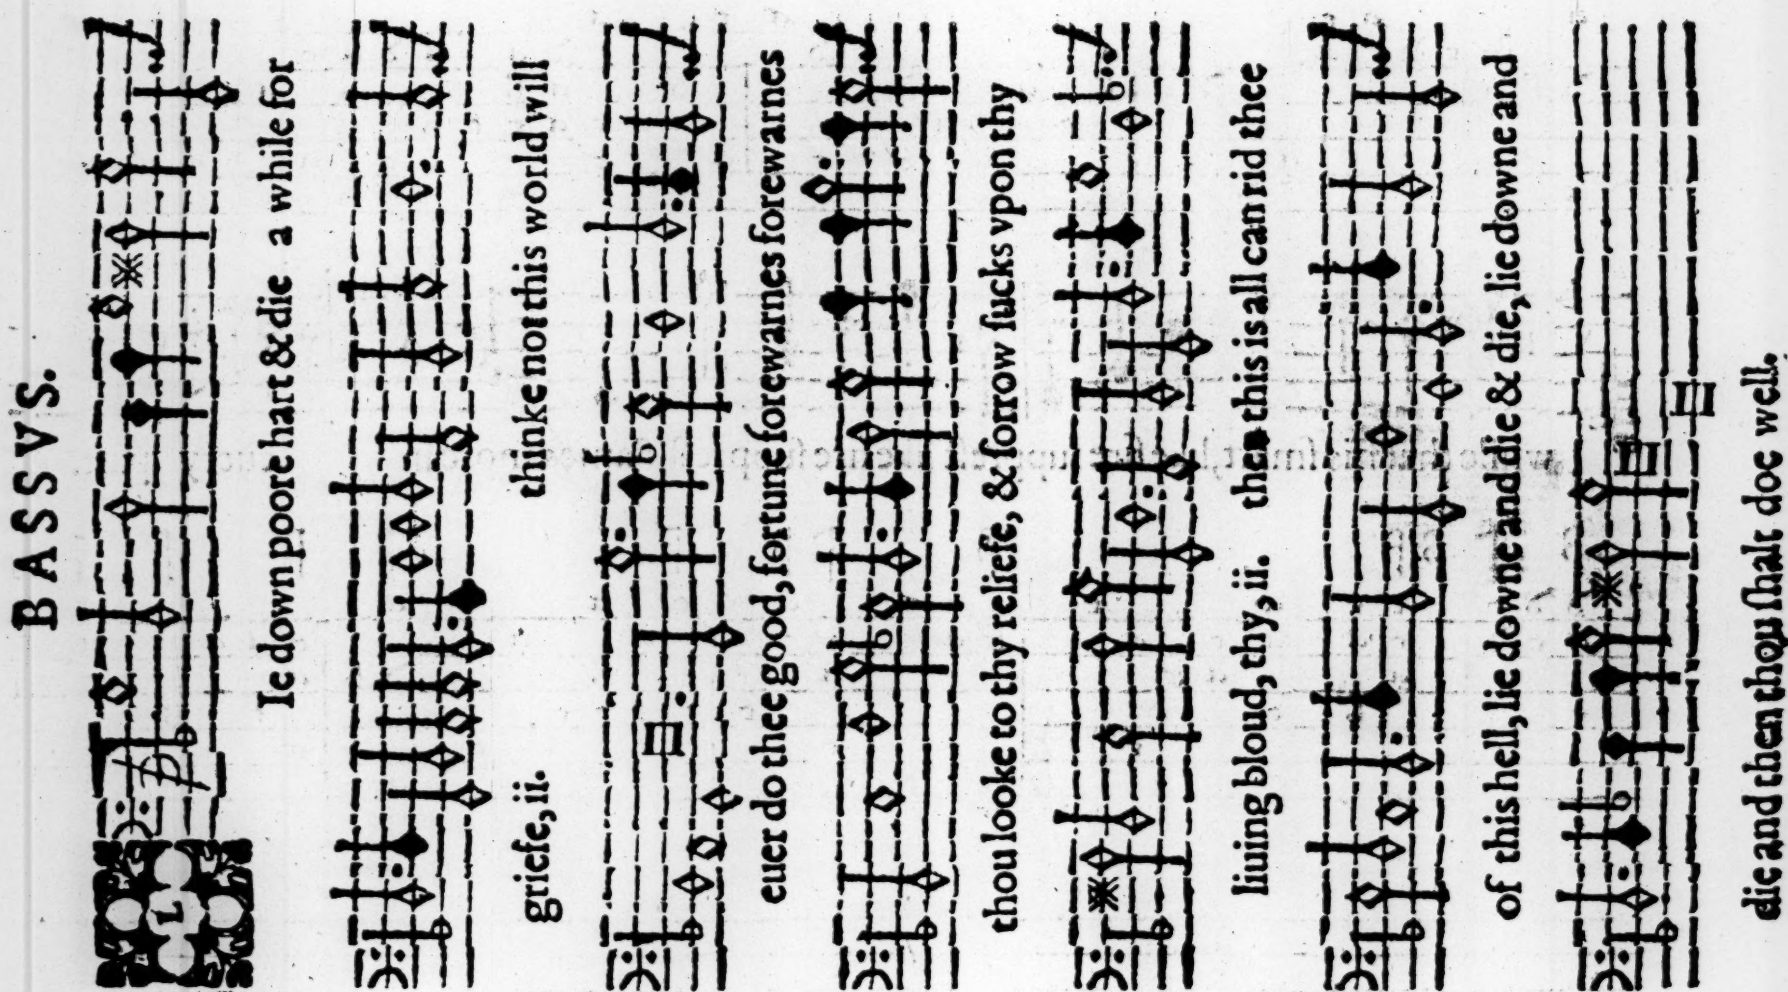 BASSVS.
LIe down poore hart & die a while for
griefe, ii. thinke not this world will
euer do thee good, fortune forewarnes forewarnes
thou looke to thy reliefe, & ſorrow ſucks vpon thy
liuing bloud, thy, ii. then this is all can rid thee
of this hell, lie downe and die & die, lie downe and
die and then thou ſhalt doe well.